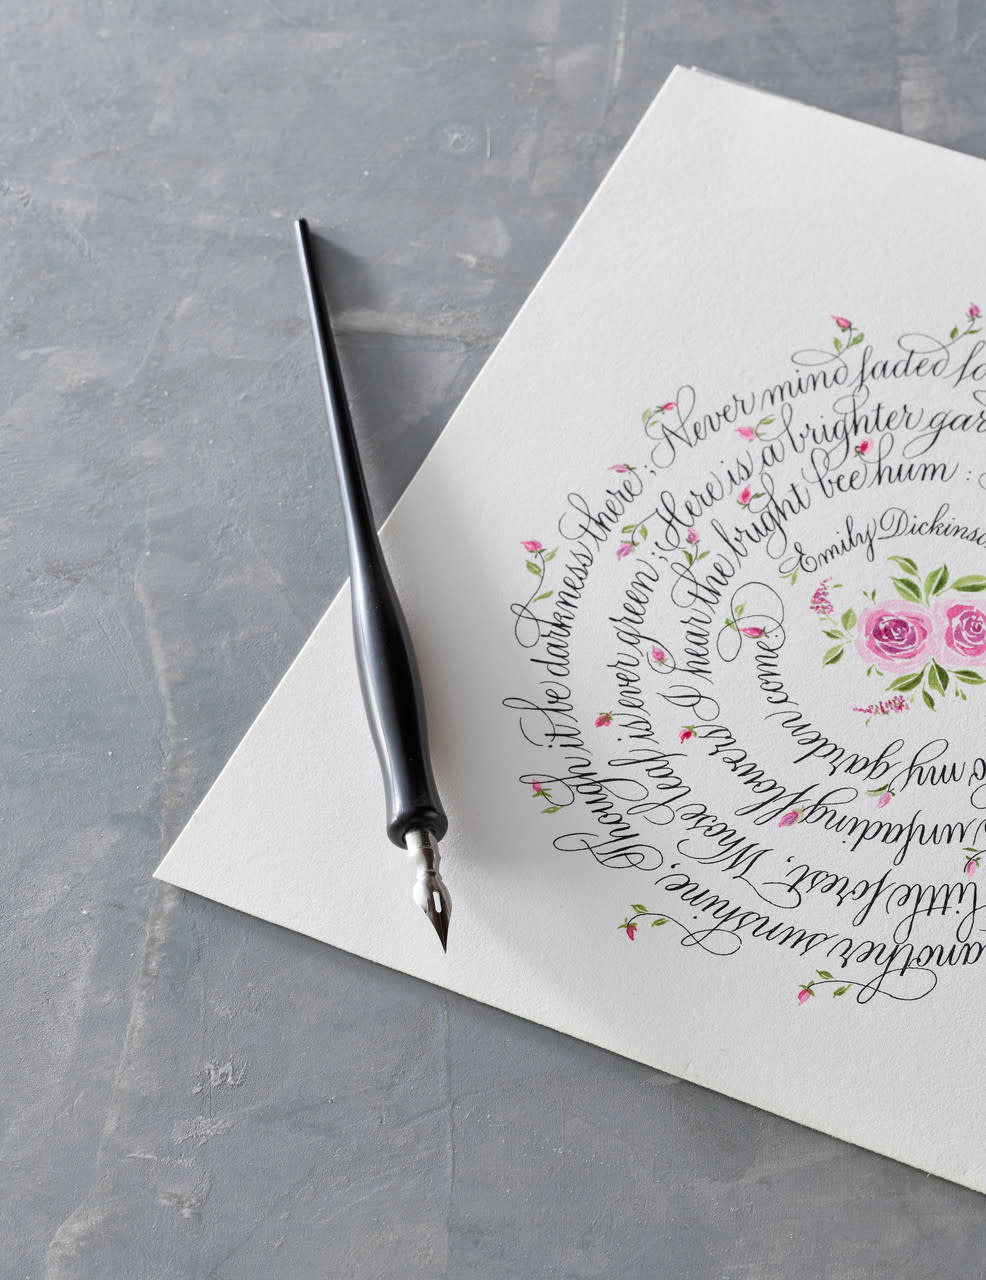 another sunshine, Though it be darkness there; Never mind faded fo
little forest, Whose leaf is ever green; Here is a brighter gar
unfading flowers I hear the bright bee hum:
o my garden come!
Emily Dickinso